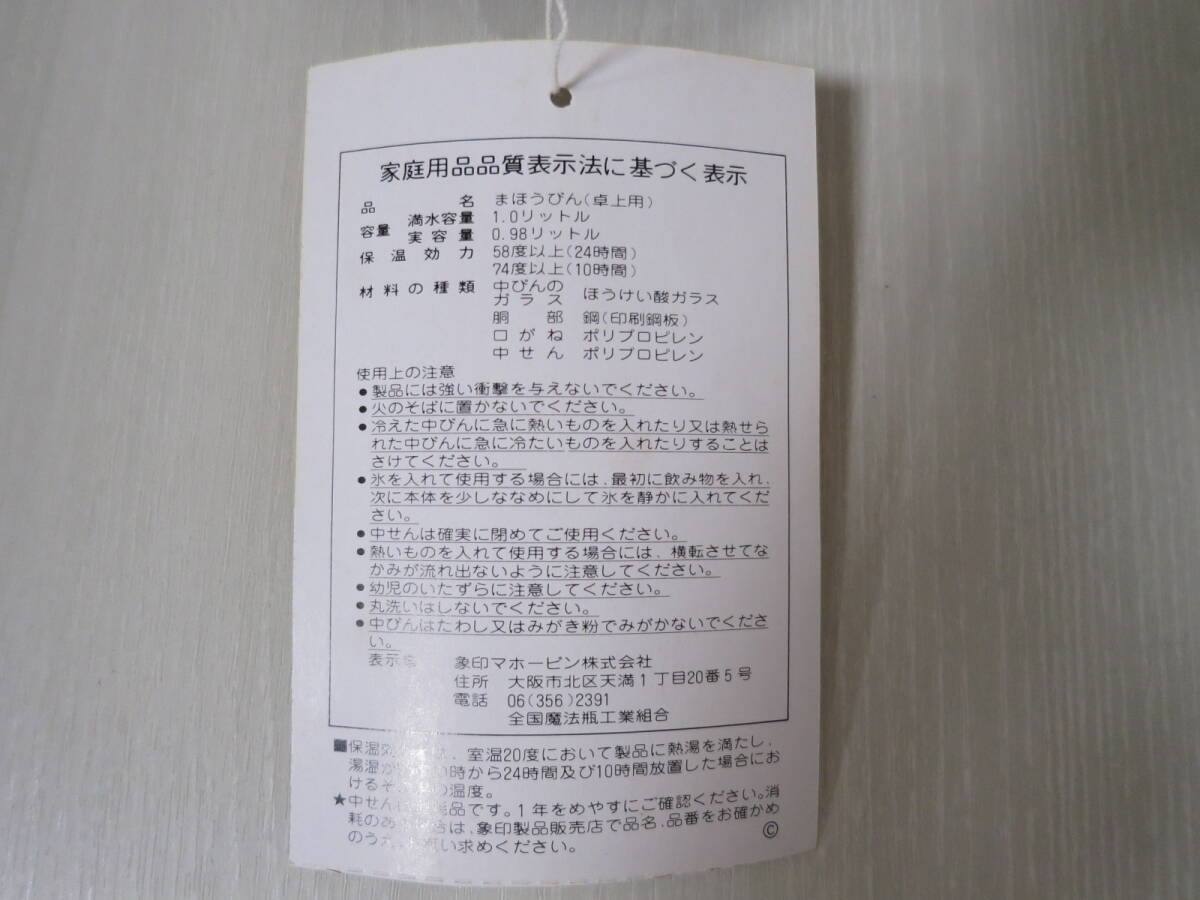 家庭用品品質表示法に基づく表示
品名 まほうびん(卓上用)
容量 満水容量 1.0リットル
実容量 0.98リットル
保温効力 58度以上(24時間)
74度以上(10時間)
材料の種類 中びんのガラス ほうけい酸ガラス
胴部 鋼(印刷鋼板)
口がね ポリプロピレン
中せん ポリプロピレン
使用上の注意
●製品には強い衝撃を与えないでください。
●火のそばに置かないでください。
●冷えた中びんに急に熱いものを入れたり又は熱せら
れた中びんに急に冷たいものを入れたりすることは
さけてください。
●氷を入れて使用する場合には、最初に飲み物を入れ、
次に本体を少しななめにして氷を静かに入れてくだ
さい。
●中せんは確実に閉めてご使用ください。
●熱いものを入れて使用する場合には、横転させてな
かみが流れ出ないように注意してください。
●幼児のいたずらに注意してください。
●丸洗いはしないでください。
●中びんはたわし又はみがき粉でみがかないでくださ
い。
表示 象印マホービン株式会社
住所 大阪市北区天満1丁目20番5号
電話 06(356)2391
全国魔法瓶工業組合
■保温 、室温20度において製品に熱湯を満たし、
湯温が 時から24時間及び10時間放置した場合にお
けるそ の温度。
★中せん 品です。1年をめやすにご確認ください。消
耗のあ は、象印製品販売店で品名、品番をお確かめ
のうえ、 い求めください。
©